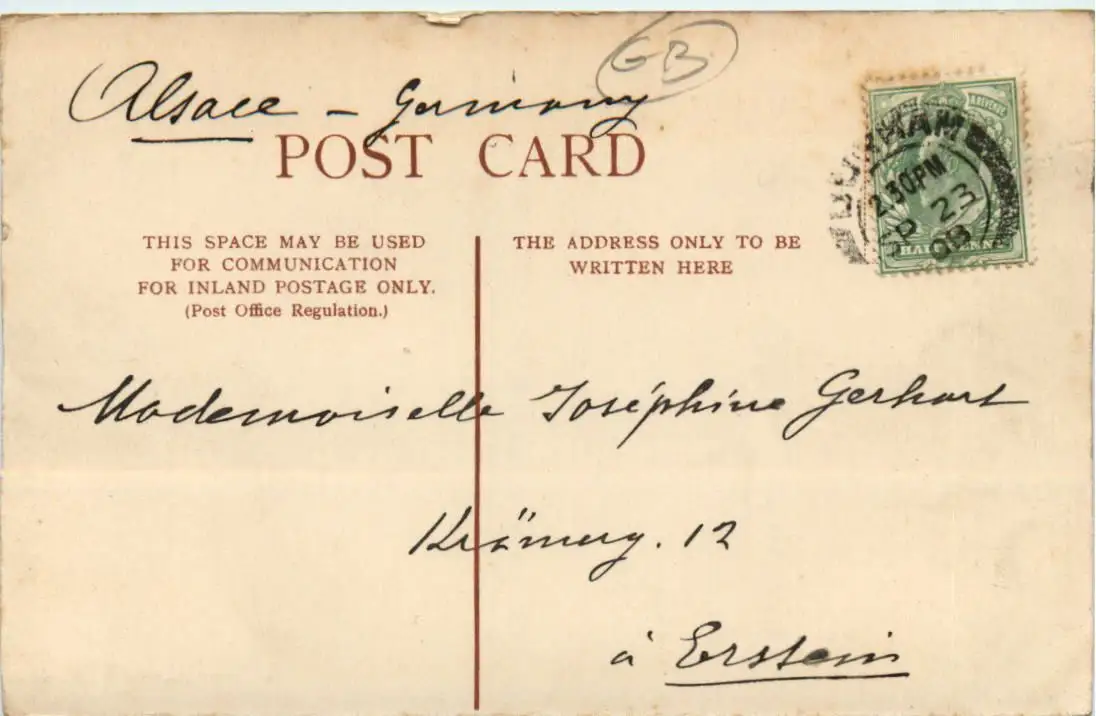 GB
Alsace - Germany
POST CARD
DURHAM
2.30PM
SP 23
08
THIS SPACE MAY BE USED
FOR COMMUNICATION
FOR INLAND POSTAGE ONLY.
(Post Office Regulation.)
THE ADDRESS ONLY TO BE
WRITTEN HERE
Mademoiselle Joséphine Gerhart
Krämerg. 12
à Erstein